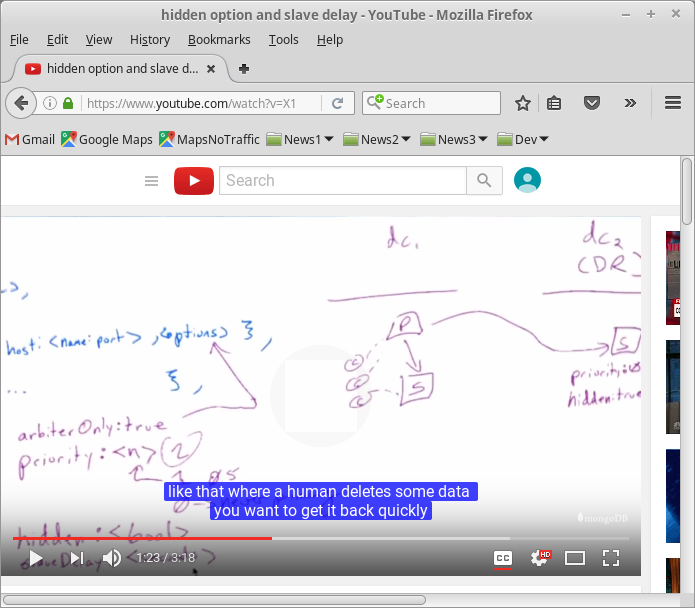 hidden option and slave delay - YouTube - Mozilla Firefox
File Edit View History Bookmarks Tools Help
hidden option and slave d...
https://www.youtube.com/watch?v=X1
Search
Gmail Google Maps MapsNoTraffic News1 News2 News3 Dev
Search
dc1
dc2
(DR)
host: <name:port>, <options> },
P
S
S
... },
priority:
hidden:true
arbiterOnly:true
priority:<n>
like that where a human deletes some data
you want to get it back quickly
mongoDB
hidden:<bool>
1:23 / 3:18
CC
HD